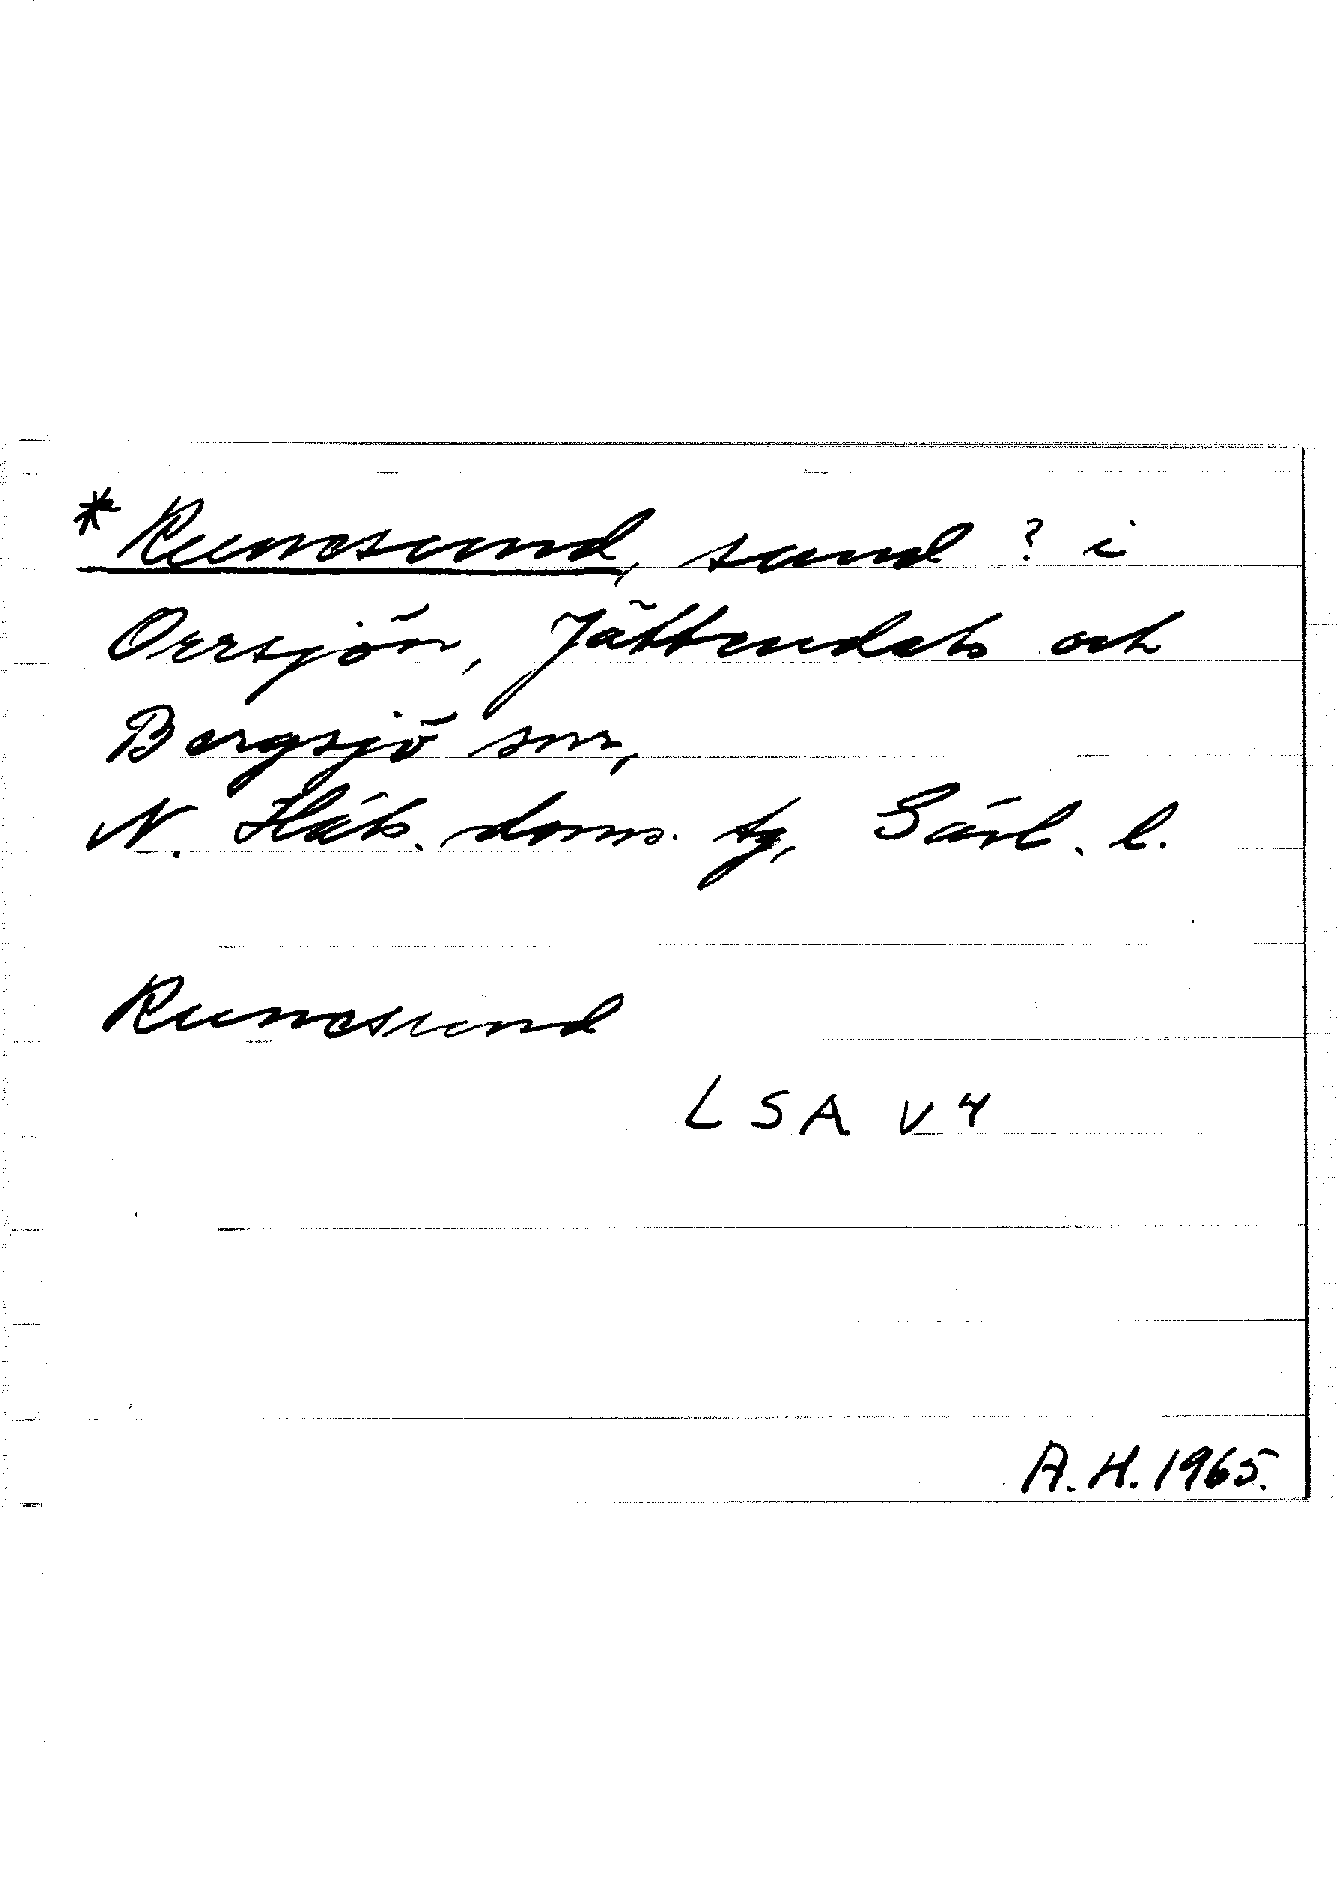 *Runesund, sund ? i
Orrsjön, Jättendals och
Bergsjö snr,
N. Häls. doms. tg, Gävl. l.
Runesund
LSA V4
A. H. 1965.